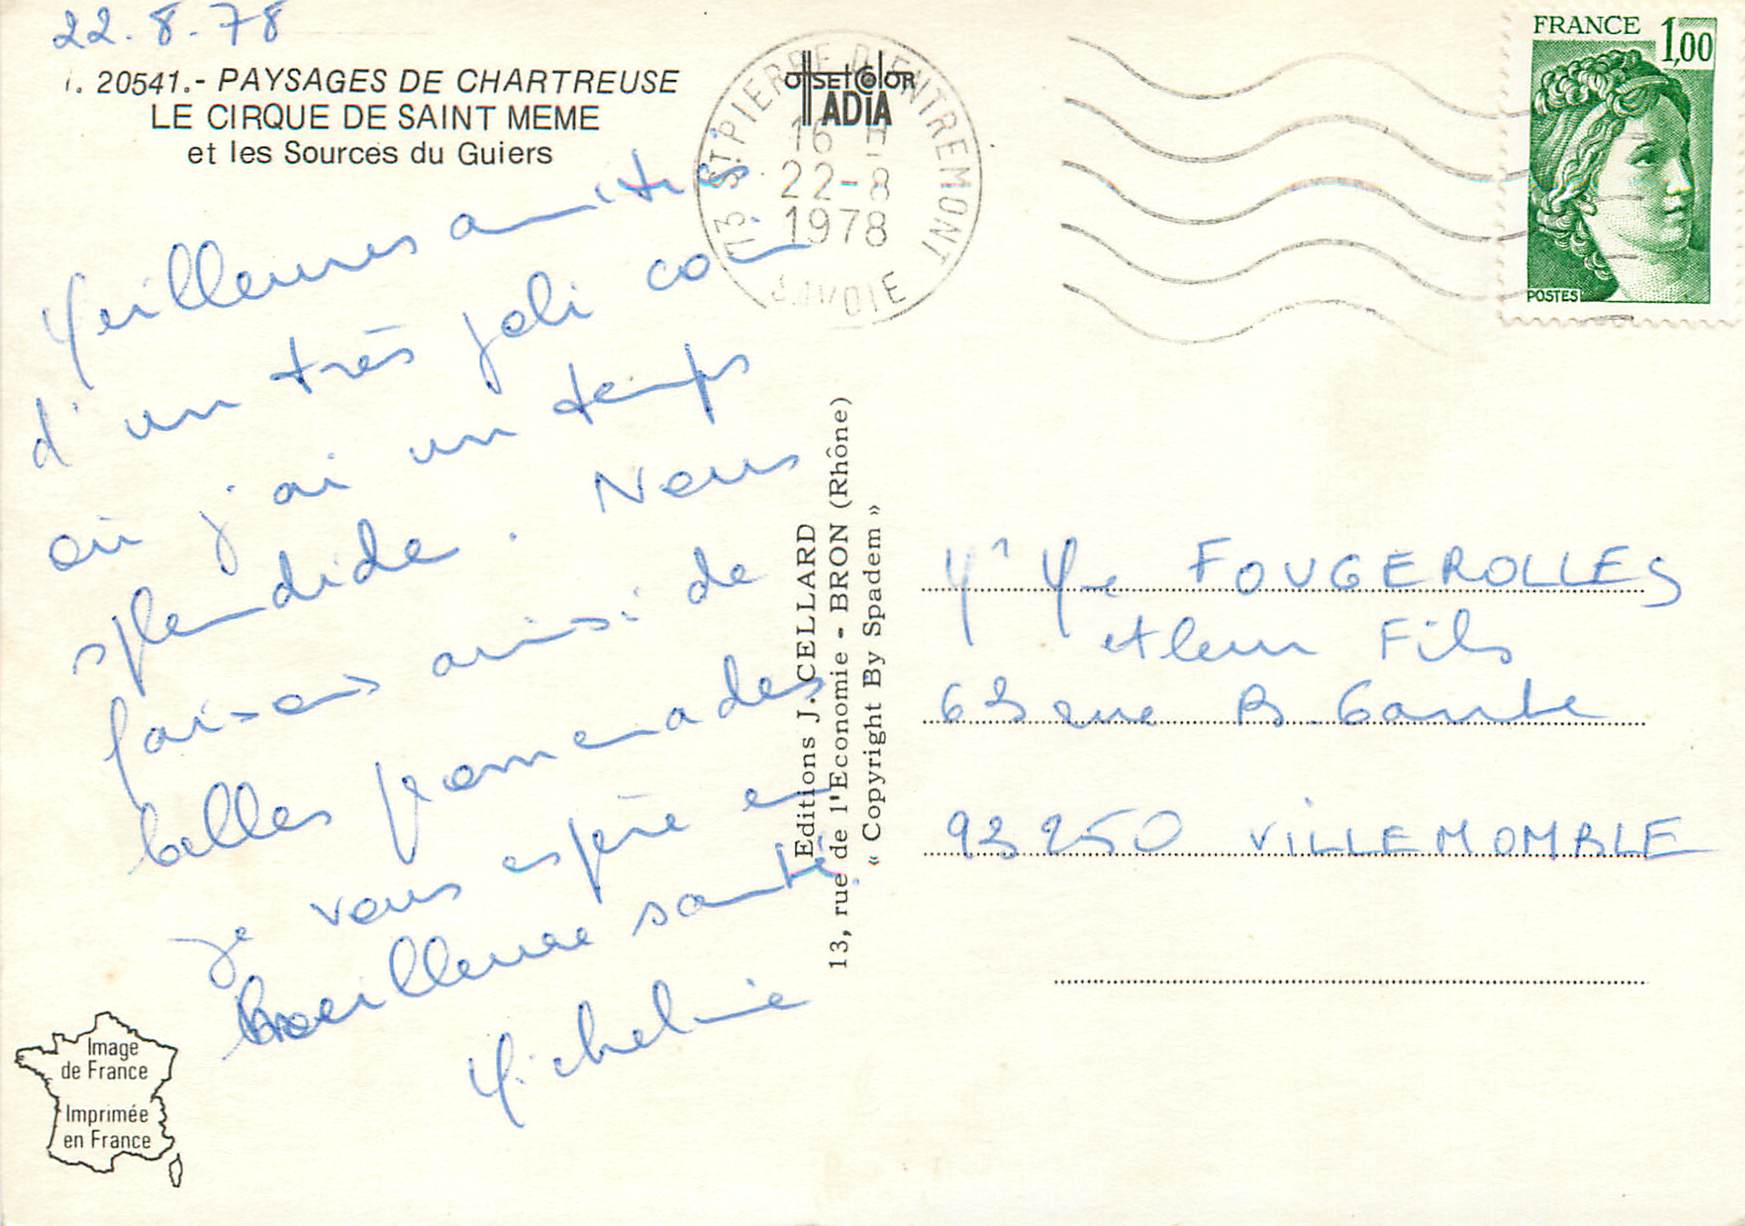 22.8.78
20541.- PAYSAGES DE CHARTREUSE
LE CIRQUE DE SAINT MEME
et les Sources du Guiers
Meilleures amitiés
d'un très joli coin
où j'ai un temps
splendide. Nous
faisons ainsi de
belles promenades
je vous espère en
meilleure santé.
Micheline
Image
de France
Imprimée
en France
OffsetColor
ADIA
73 ST PIERRE D'ENTREMONT
16 H
22-8
1978
SAVOIE
Editions J. CELLARD
13, rue de l'Economie - BRON (Rhône)
« Copyright By Spadem »
FRANCE 1,00
POSTES
Mr Mme FOUGEROLLES
et leur Fils
63 rue B. Gante
93250 VILLEMOMBLE